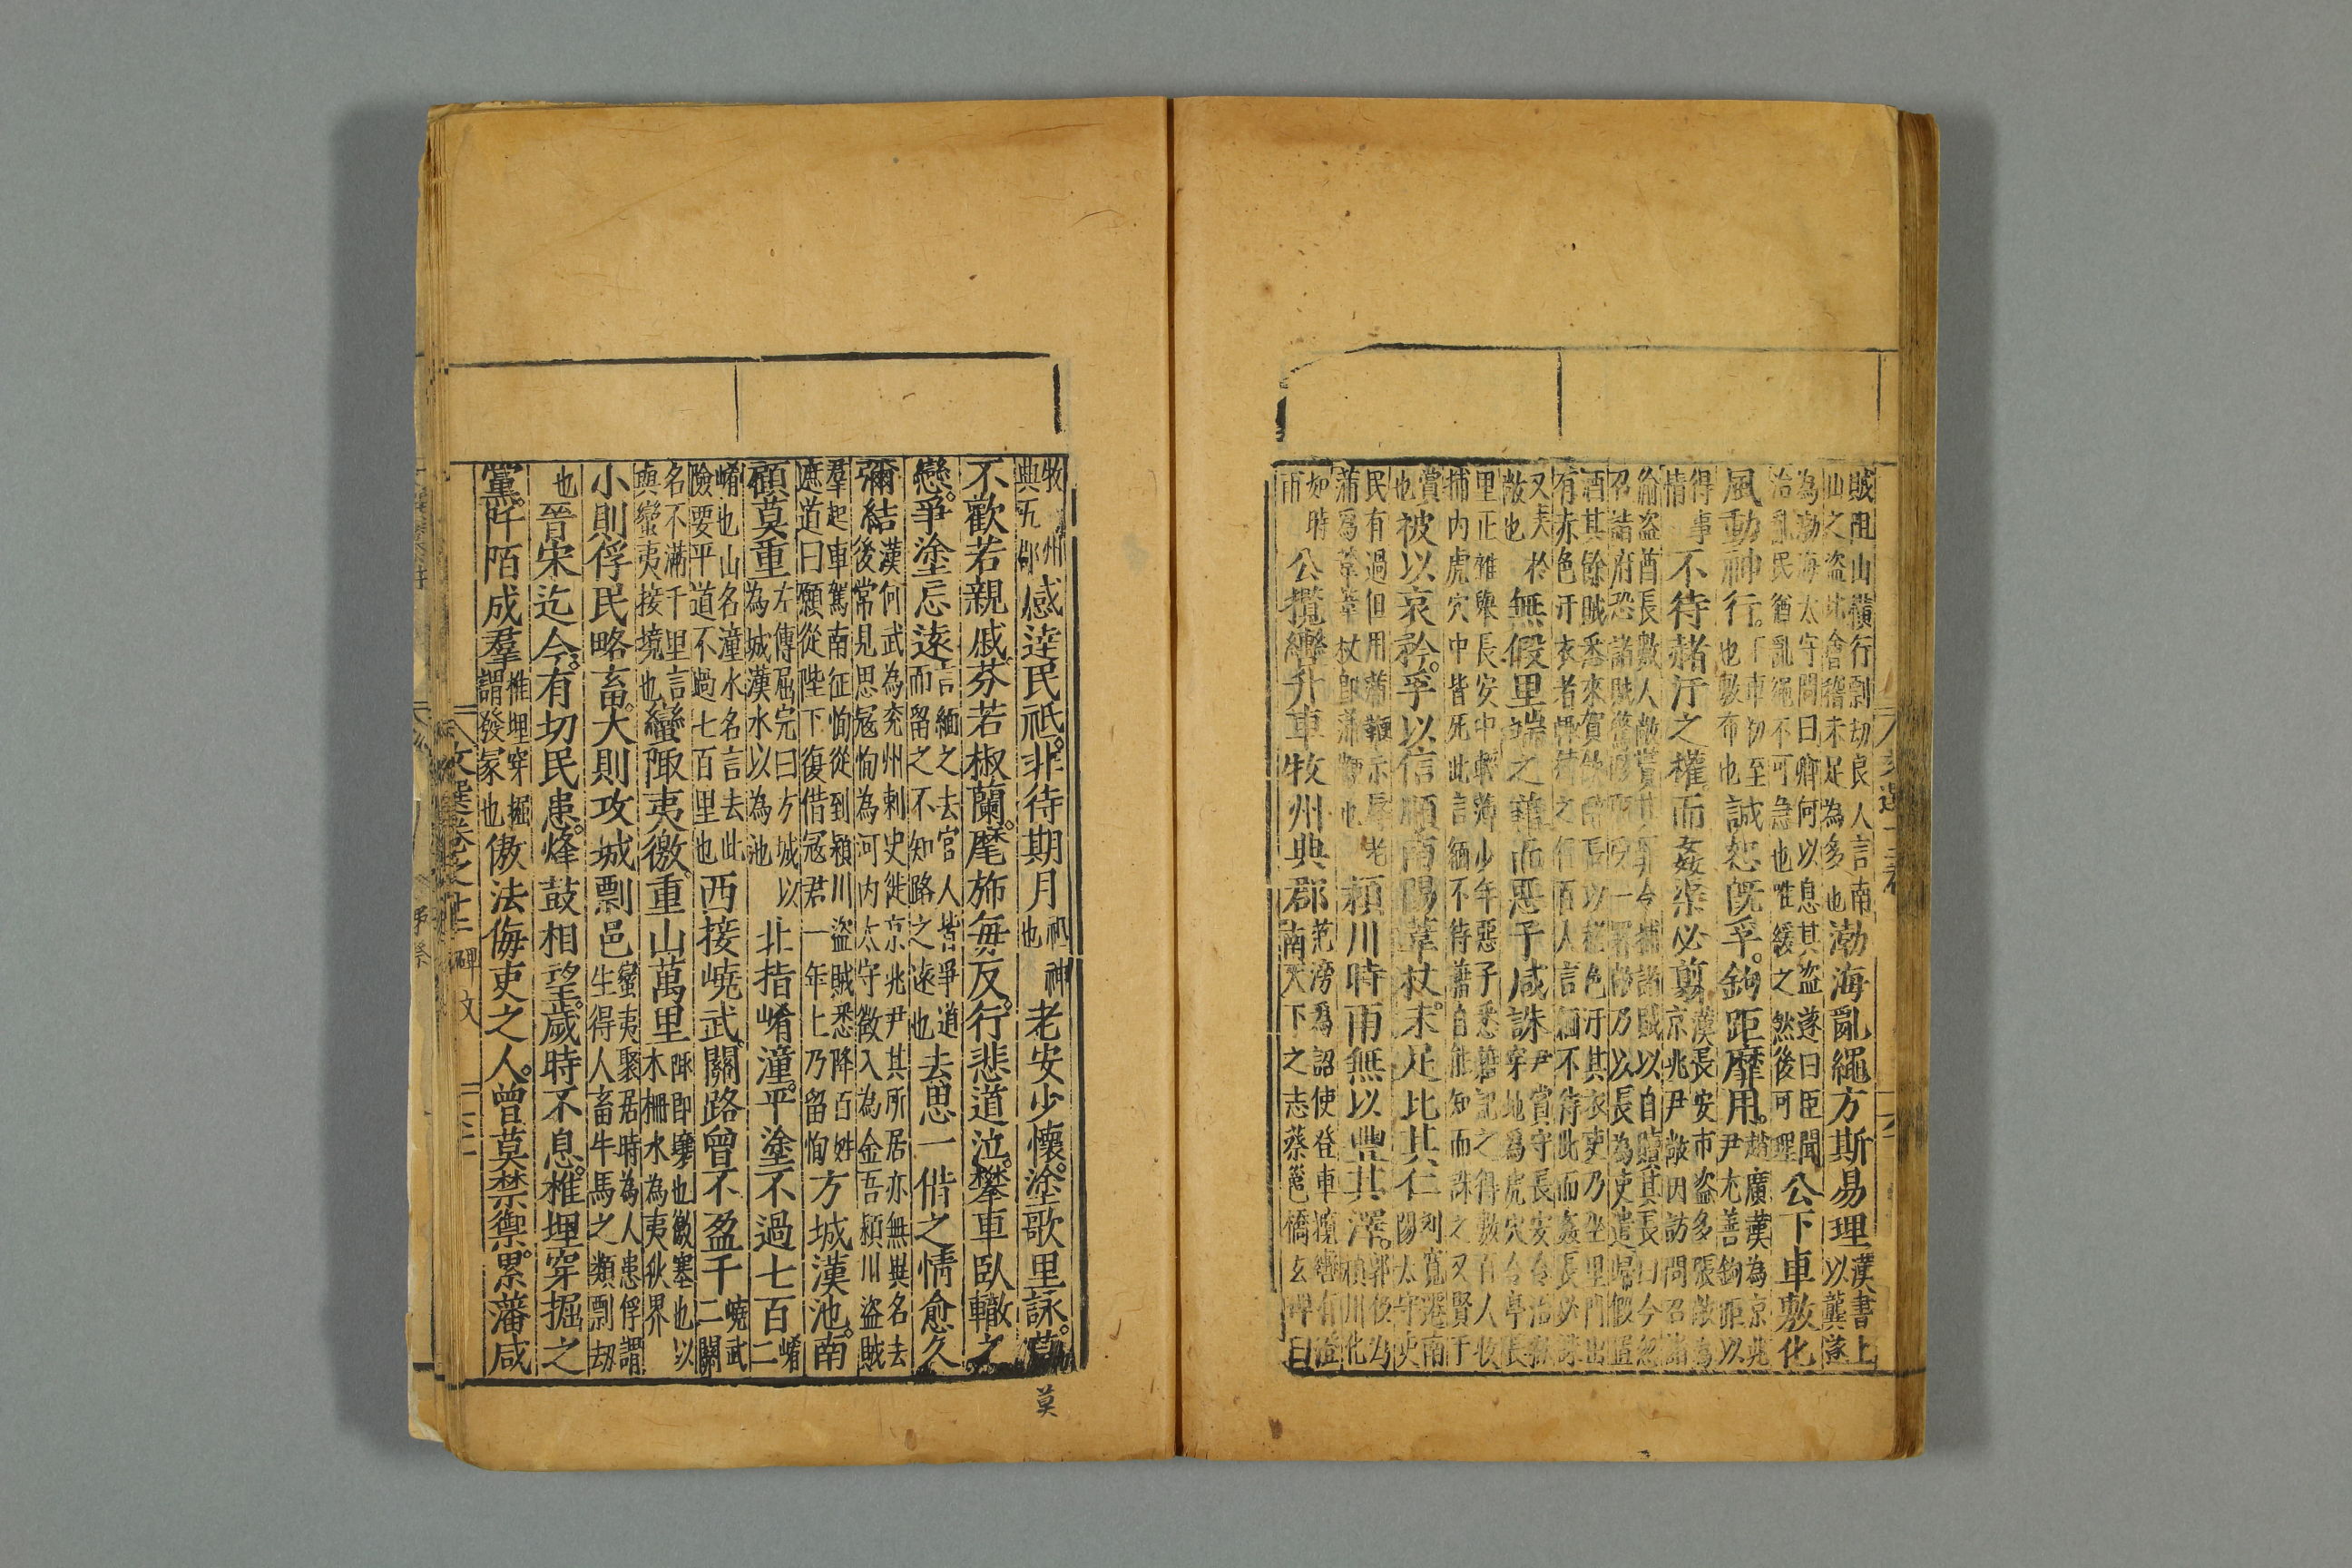 賊阻山橫行剽刼良人言南
山之盜此會稽未足為多也
渤海亂繩方斯易理
漢書上
以龔遂
為渤海太守問曰卿何以息其盜遂曰臣聞
治亂民猶亂繩不可急也唯緩之然後可理
公下車敷化
風動神行。
下車初至
也敷布也
誠恕既孚。鉤距靡用。
趙廣漢為京兆
尹尤善鉤距以
得事
情
不待赭汙之權而姦渠必翦
漢長安市盜多張敞為
京兆尹敞因訪問召諸
偷盜酋長數人敞令捕諸賊以自贖其長曰今忽
召詣府恐諸賊驚以長為吏遣歸假置
酒其餘賊悉來賀飲以赭色汙其衣吏乃坐里門出
有赤色汙衣者百人言緬不待此而姦長必誅
又夫於
敞也
無假里端之籍而惡子咸誅
尹賞守長安令治獄
穿地爲虎穴令亭長
里正雜舉長安中輕薄少年惡子悉籍記之得數百人收
捕内虎穴中皆死此言緬不待籍自能知而誅之又賢于
賞
也
被以哀矜。孚以信順南陽葦杖。未足比其仁
劉寬遷南
陽太守吏
民有過但用蒲鞭示辱
蒲爲葦葦杖即蒲鞭也
頴川時雨無以豐其澤。
郭伋為
頴川化
如時
雨
公攬轡升車牧州典郡
范滂爲詔使登車攬轡有澄
南天下之志蔡邕橋玄碑曰
牧州
典五郡
感達民祗。非待期月
祗神
也
老安少懷。塗歌里詠。莫
不歡若親戚芬若椒蘭。麾斾每反。行悲道泣。攀車臥轍之
戀。爭塗忘遠
言緬之去官人皆爭道
而留之不知路之遠也
去思一借之情愈久
彌結
漢何武為兖州刺史徙京兆尹其所居亦無異名去
後常見思冦恂為河内太守徵入為金吾頴川盜賊
羣起車駕南征恂從到頴川盜賊悉降百姓
遮道曰願從陛下復借冦君一年上乃留恂
方城漢池。南
顧莫重
左傳屈完曰方城以
為城漢水以為池
北指崤潼。平塗不過七百
崤
二
崤也山名潼水名言去此
險要平道不過七百里也
西接嶢武關路曾不盈千
嶢武
二關
名不滿千里言
與蠻夷接境也
蠻陬夷徼。重山萬里
陬即壤也徼塞也以
木柵水為夷狄界
小則俘民略畜。大則攻城剽邑
蠻夷聚居時為人患俘謂
生得人畜牛馬之類剽刼
也
晉宋迄今。有切民患。烽鼓相望。歲時不息。椎埋穿掘之
黨。阡陌成羣
椎埋穿掘
謂發冢也
傲法侮吏之人。曾莫禁禦。累藩咸
莫
文選卷之十二
碑文